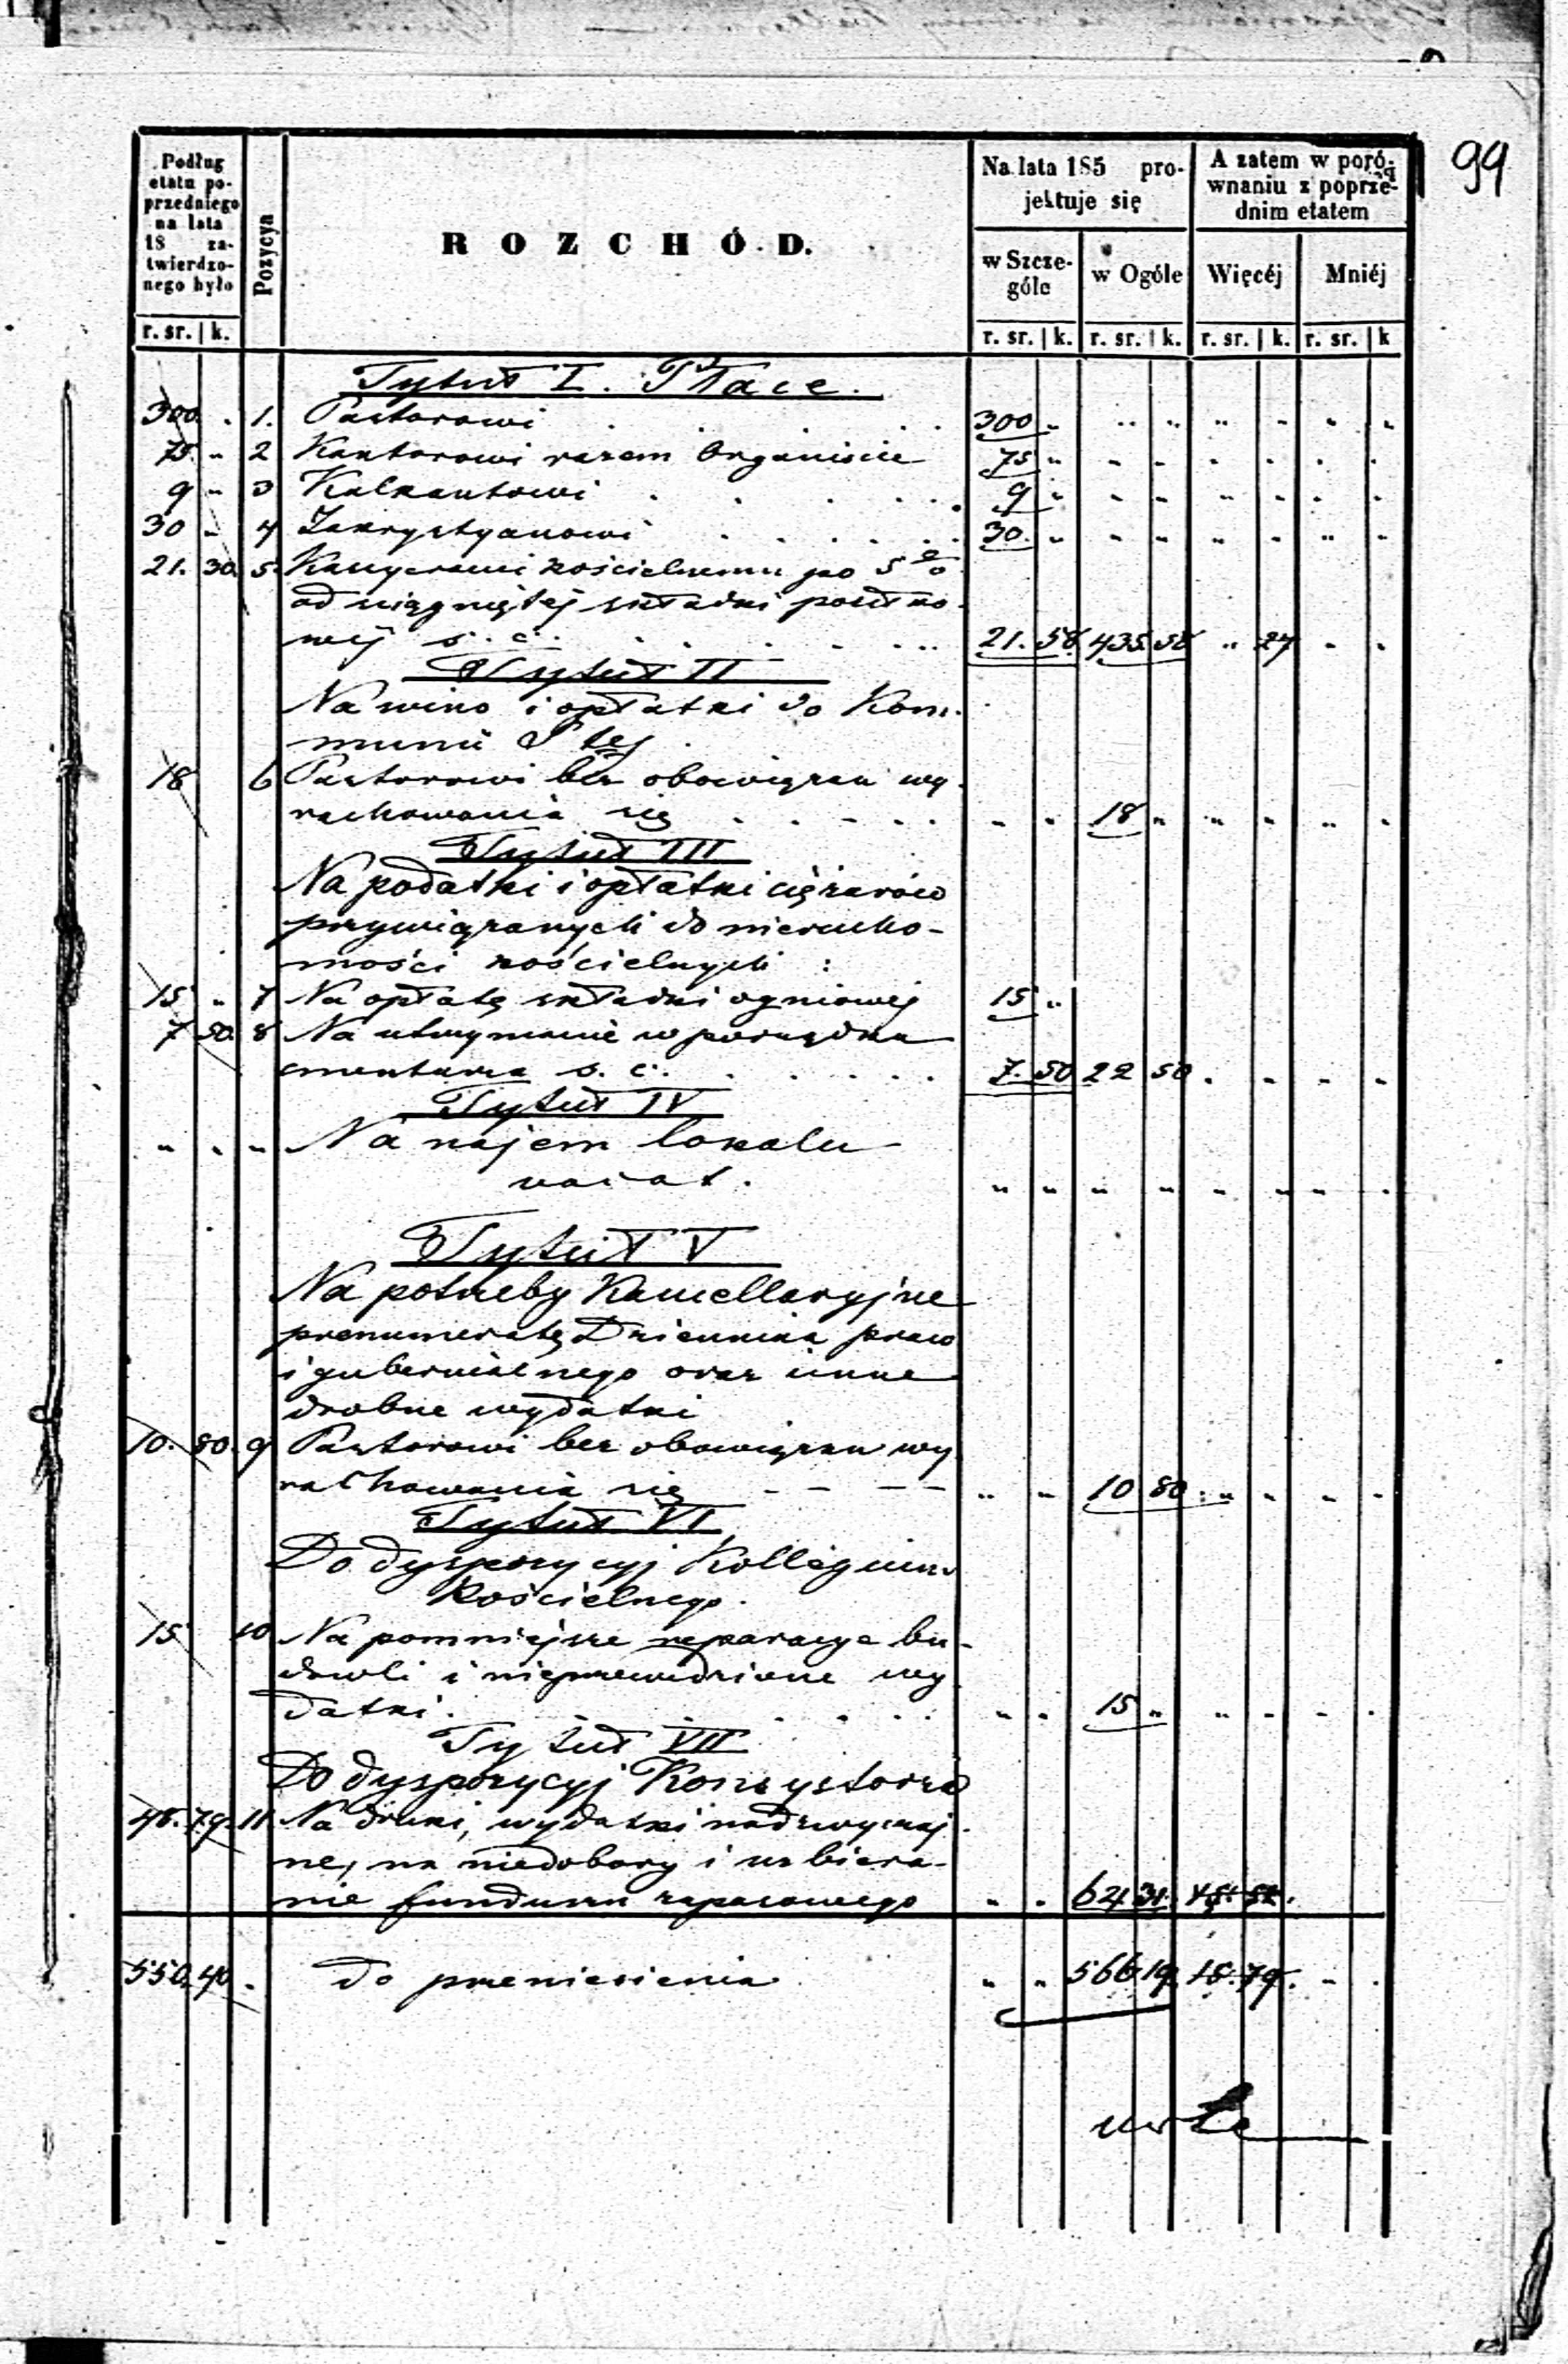 99
Podług etatu poprzedniego na lata 18 zatwierdzonego było
Pozycya
R O Z C H Ó D.
Na lata 185 projektuje się
A zatem w porównaniu z poprzednim etatem
w Szczególe
w Ogóle
Więcéj
Mniéj
r. sr. | k. r. sr. | k. r. sr. | k. r. sr. | k. r. sr. | k
Tytuł I. Płace.
300 . 1. Pastorowi . . . . 300 "
75 " 2 Kantorowi razem Organiście 75 "
9 " 3 Kalkantowi . . . . 9 "
30 " 4 Zakrystyanowi . . . . 30. "
21. 30. 5. Kassyerowi kościelnemu po 5 %
od ściągniętej składki posiłko-
wéj s. c. . . . . 21. 58 435 58 " 27 " "
Tytuł II
Na wino i opłatki do Kom-
munii S tej
18 6 Pastorowi bez obowiązku wy-
rachowania się . . . . " " 18 " " " " "
Tytuł III
Na podatki i opłatki ciężarów
przywiązanych do nierucho-
mości kościelnych :
15 " 7 Na opłatę składki ogniowéj 15 "
7 50. 8 Na utrzymanie w porządku
cmentarza s. c. . . . . 7. 50 22 50 . " " "
Tytuł IV
" " " Na najem lokalu
vacat. " " " " " " " "
Tytuł V
Na potrzeby Kancellaryjne
prenumeratę Dziennika praw
i gubernialnego oraz inne
drobne wydatki
10. 80. 9 Pastorowi bez obowiązku wy-
rachowania się - - - - " " 10 80 . " " " "
Tytuł VI
Do dyspozycyj Kollegium
Kościelnego.
15 10 Na pomniejsze reparacye bu-
dowli i nieprzewidziane wy
datki. . . . . " " 15 " " " " "
Tytuł VII
Do dyspozycyj Konsystorza
48. 79. 11 Na druki, wydatki nadzwyczaj-
ne, na niedobory i uzbiera-
nie funduszu zapasowego " " 64 31. 15. 52.
550. 40 . do przeniesienia " " 566 19. 15. 79. " .